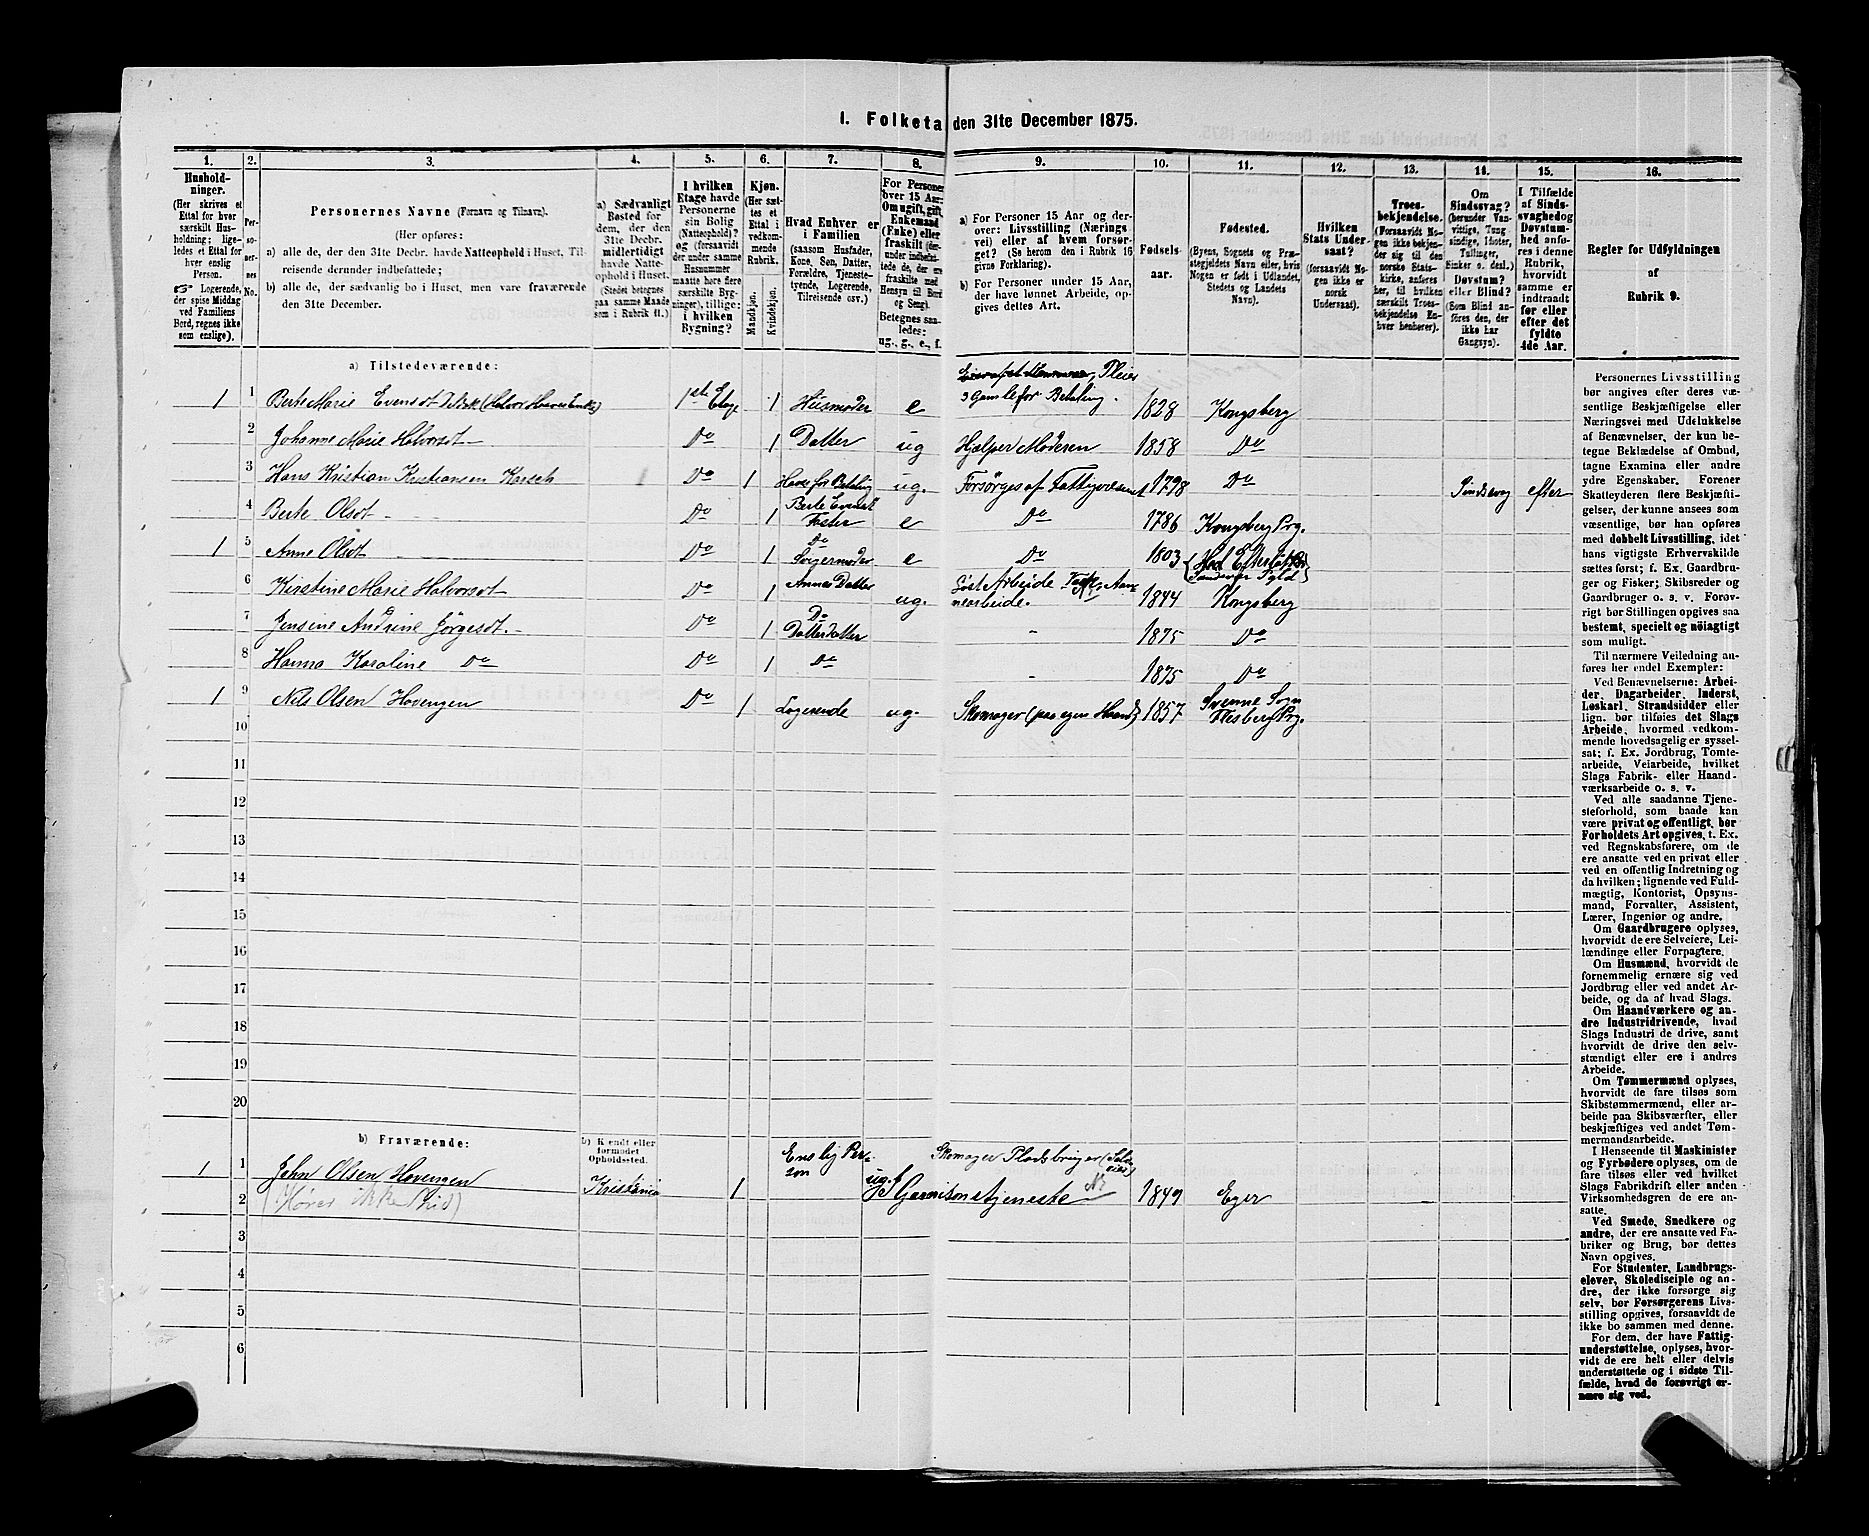 1. Folketa den 31te December 1875.
1. 2. 3. 4. 5. 6. 7. 8. 9. 10. 11. 12. 13. 14. 15. 16.
Hushold-
ninger.
(Her skrives et
Ettal for hver
særskilt Hus-
holdning; lige-
ledes et Ettal for
hver enslig
Person.
☞ Logerende,
der spise Middag
ved Familiens
Bord, regnes ikke
som enslige).
Per-
so-
ner-
nes
No.
Personernes Navne (Fornavn og Tilnavn).
(Her opføres:
a) alle de, der den 31te Decbr. havde Natteophold i Huset, Til-
reisende derunder indbefattede;
b) alle de, der sædvanlig bo i Huset, men vare fraværende
den 31te December.
a) Sædvanligt
Bosted for
dem, der den
31te Decbr.
midlertidigt
havde Natte-
ophold i Huset.
(Stedet betegnes
paa samme Maade
som i Rubrik 11.)
I hvilken
Etage havde
Personerne
sin Bolig
(Natteophold)?
og (forsaavidt
der under samme
Husnummer
maatte høre flere
særskilte Byg-
ninger), tillige:
i hvilken
Bygning?
Kjøn.
(Her sæt-
tes et
Ettal i
vedkom-
mende
Rubrik.
Mandkjøn.
Kvindekjøn.
Hvad Enhver er
i Familien
(saasom Husfader,
Kone, Søn, Datter,
Forældre, Tjeneste-
tyende, Logerende,
Tilreisende osv.)
For Personer
over 15 Aar:
Om ugift, gift,
Enkemand
(Enke) eller
fraskilt (der-
under indbefat-
tede de, der ere
fraskilte med
Hensyn til Bord
og Seng).
Betegnes saa-
ledes:
ug., g., e., f.
a) For Personer 15 Aar og der-
over: Livsstilling (Nærings-
vei) eller af hvem forsør-
get? (Se herom den i Rubrik 16
givne Forklaring).
b) For Personer under 15 Aar,
der have lønnet Arbeide, op-
gives dettes Art.
Fødsels-
aar.
Fødested.
(Byens, Sognets og Præ-
stegjeldets Navn eller, hvis
Nogen er født i Udlandet,
Stedets og Landets
Navn).
Hvilken
Stats Under-
saat?
(forsaavidt No-
gen ikke er
norsk
Undersaat).
Troes-
bekjendelse.
(Forsaavidt No-
gen ikke bekjen-
der sig til den
norske Stats-
kirke, anføres
her, til hvilken
særskilt Troes-
bekjendelse En-
hver henhører).
Om
Sindssvag?
(herunder Van-
vittige, Tung-
sindige, Idioter,
Tullinger,
Sinker o. desl.)
Døvstum?
eller Blind?
(Som Blind an-
føres den, der
ikke har
Gangsyn).
I Tilfælde
af Sinds-
svaghed og
Døvstum-
hed anfø-
res i denne
Rubrik,
hvorvidt
samme er
indtraadt
før eller
efter det
fyldte
4de Aar.
Regler for Udfyldningen
af
Rubrik 9.
a) Tilstedeværende:
1 1 Berte Marie Evensdt 1ste Etage 1 Husmoder e Pleier 3 Gamle for Betaling. 1828 Kongsberg
2 Johanne Marie Halvorsdt Do 1 Datter ug Hjælper Moderen 1858 Do
3 Hans Kristian Kristiansen Do 1 Betaling ug. Forsørges af Fattigvæsenet 1798 Do Sindssvag efter
4 Berte Olsdt Do 1 Berte Evensdt Faster e Do 1786 Kongsberg Prg.
1 5 Anne Olsdt Do 1 Do e Do 1803
6 Kirstine Marie Halvorsdt Do 1 Annes Datter ug. Arbeide 1844 Kongsberg
7 Jensine Andrine Jørgesdt. Do 1 Do Datterdatter - 1875 Do
8 Hanna Karoline Do Do 1 Do - 1875 Do
1 9 Nils Olsen Hovengen Do 1 Logerende ug. Skomager (paa egen Haand) 1857 Svenne Sogn Flesberg Prg.
10
11
12
13
14
15
16
17
18
19
20
b) Fraværende:
b) Kjendt eller
formodet
Opholdssted.
1 1 John Olsen Hovengen Kristania 1 Enslig Person ug. Skomager Pladsbruger Garnisonstjeneste 1849 Eger
2 (Hører ikke hid)
3
4
5
6
Personernes Livsstilling
bør angives efter deres væ-
sentlige Beskjæftigelse eller
Næringsvei med Udelukkelse
af Benævnelser, der kun be-
tegne Beklædelse af Ombud,
tagne Examina eller andre
ydre Egenskaber. Forener
Skatteyderen flere Beskjæfti-
gelser, der kunne ansees som
væsentlige, bør han opføres
med dobbelt Livsstilling, idet
hans vigtigste Erhvervskilde
sættes først; f. Ex. Gaardbru-
ger og Fisker; Skibsreder og
Gaardbruger o. s. v. Forøv-
rigt bør Stillingen opgives saa
bestemt, specielt og nöiagtigt
som muligt.
Til nærmere Veiledning an-
føres her endel Exempler:
Ved Benævnelserne: Arbei-
der, Dagarbeider, Inderst,
Løskarl, Strandsidder eller
lign. bør tilføies det Slags
Arbeide, hvormed vedkom-
mende hovedsagelig er syssel-
sat; f. Ex. Jordbrug, Tomte-
arbeide, Veiarbeide, hvilket
Slags Fabrik- eller Haand-
værksarbeide o. s. v.
Ved alle saadanne Tjene-
steforhold, som baade kan
være privat og offentligt, bør
Forholdets Art opgives, t. Ex.
ved Regnskabsførere, om de
ere ansatte ved en privat eller
ved en offentlig Indretning og
da hvilken; lignende ved Fuld-
mægtig, Kontorist, Opsyns-
mand, Forvalter, Assistent,
Lærer, Ingeniør og andre.
Om Gaardbrugere oplyses,
hvorvidt de ere Selveiere, Lei-
lændinge eller Forpagtere.
Om Husmænd, hvorvidt de
fornemmelig ernære sig ved
Jordbrug eller ved andet Ar-
beide, og da af hvad Slags.
Om Haandværkere og an-
dre Industridrivende, hvad
Slags Industri de drive, samt
hvorvidt de drive den selv-
stændigt eller ere i andres
Arbeide.
Om Tømmermænd oplyses,
hvorvidt de fare tilsøs som
Skibstømmermænd, eller ar-
beide paa Skibsværfter, eller
beskjæftiges ved andet Tøm-
mermandsarbeide.
I Henseende til Maskinister
og Fyrbødere oplyses, om de
fare tilsøs eller ved hvilket
Slags Fabrikdrift eller anden
Virksomhedsgren de ere an-
satte.
Ved Smede, Snedkere og
andre, der ere ansatte ved Fa-
briker og Brug, bør dettes
Navn opgives.
For Studenter, Landbrugs-
elever, Skoledisciple og an-
dre, der ikke forsørge sig
selv, bør Forsørgerens Livs-
stilling opgives, forsaavidt de
ikke bo sammen med denne.
For dem, der have Fattig-
understøttelse, oplyses, hvor-
vidt de ere helt eller delvis
understøttede og i sidste Til-
fælde, hvad de forøvrigt er-
nære sig ved.